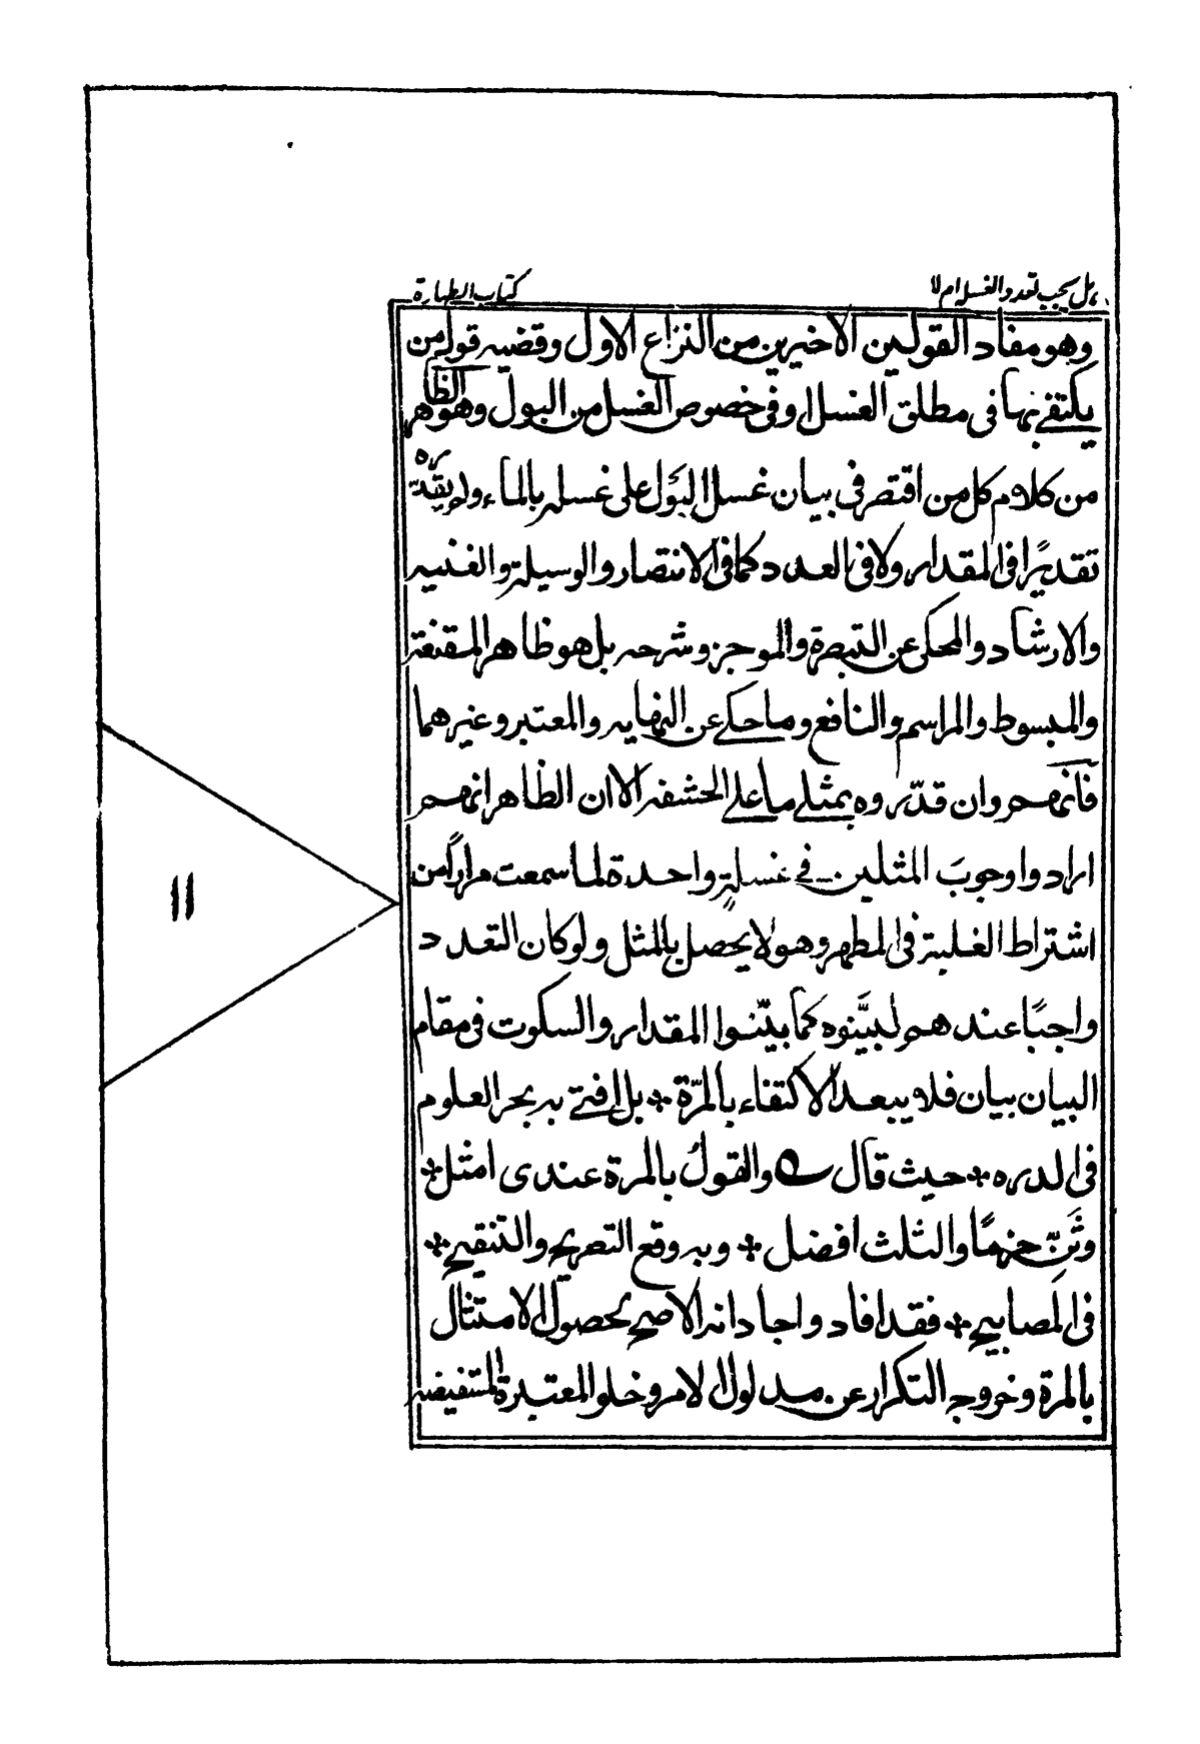 هل يجب تعدد الغسل ام لا
كتاب الطهارة
وهو مفاد القولين الاخيرين من النزاع الاول وقضيه قول من
يكتفے بها فى مطلق الغسل او فى خصوص الغسل من البول وهو الظاهر
من كلام كل من اقتصر فى بيان غسل البَول على غسله بالماء ولم يقدّره
تقديرًا فى المقدار ولا فى العدد كما فى الانتصار والوسيلة والغنيه
والارشاد والمحكى عن التبصرة والموجز وشرحه بل هو ظاهر المقنعة
والمبسوط والمراسم والنافع وما حكے عن النهايه والمعتبر وغيرهما
فانهم وان قدّروه بمثلے ما علے الحشفة الا ان الظاهر انهم
ارادوا وجوبَ المثلين فے غسلةٍ واحدة لما سمعت مرارًا من
اشتراط الغلبة فى المطهر وهو لا يحصل بالمثل ولو كان التعدد
واجبًا عندهم لبيَّنوه كما بيّنوا المقدار والسكوت فى مقام
البيان بيان فلا يبعد الاكتفاء بالمرّة * بل افتے به بحر العلوم
فى الدره * حيث قال ه والقولُ بالمرة عندى امثل *
وثَنِّ حزمًا والثلث افضل * وبه وقع التصريح والتنقيح *
فى المَصابيح * فقد افاد واجاد انه الاصح لحصول الامتثال
بالمرة وخروج التكرار عن مدلول الامر وخلو المعتبرة المستفيضه
۱۱